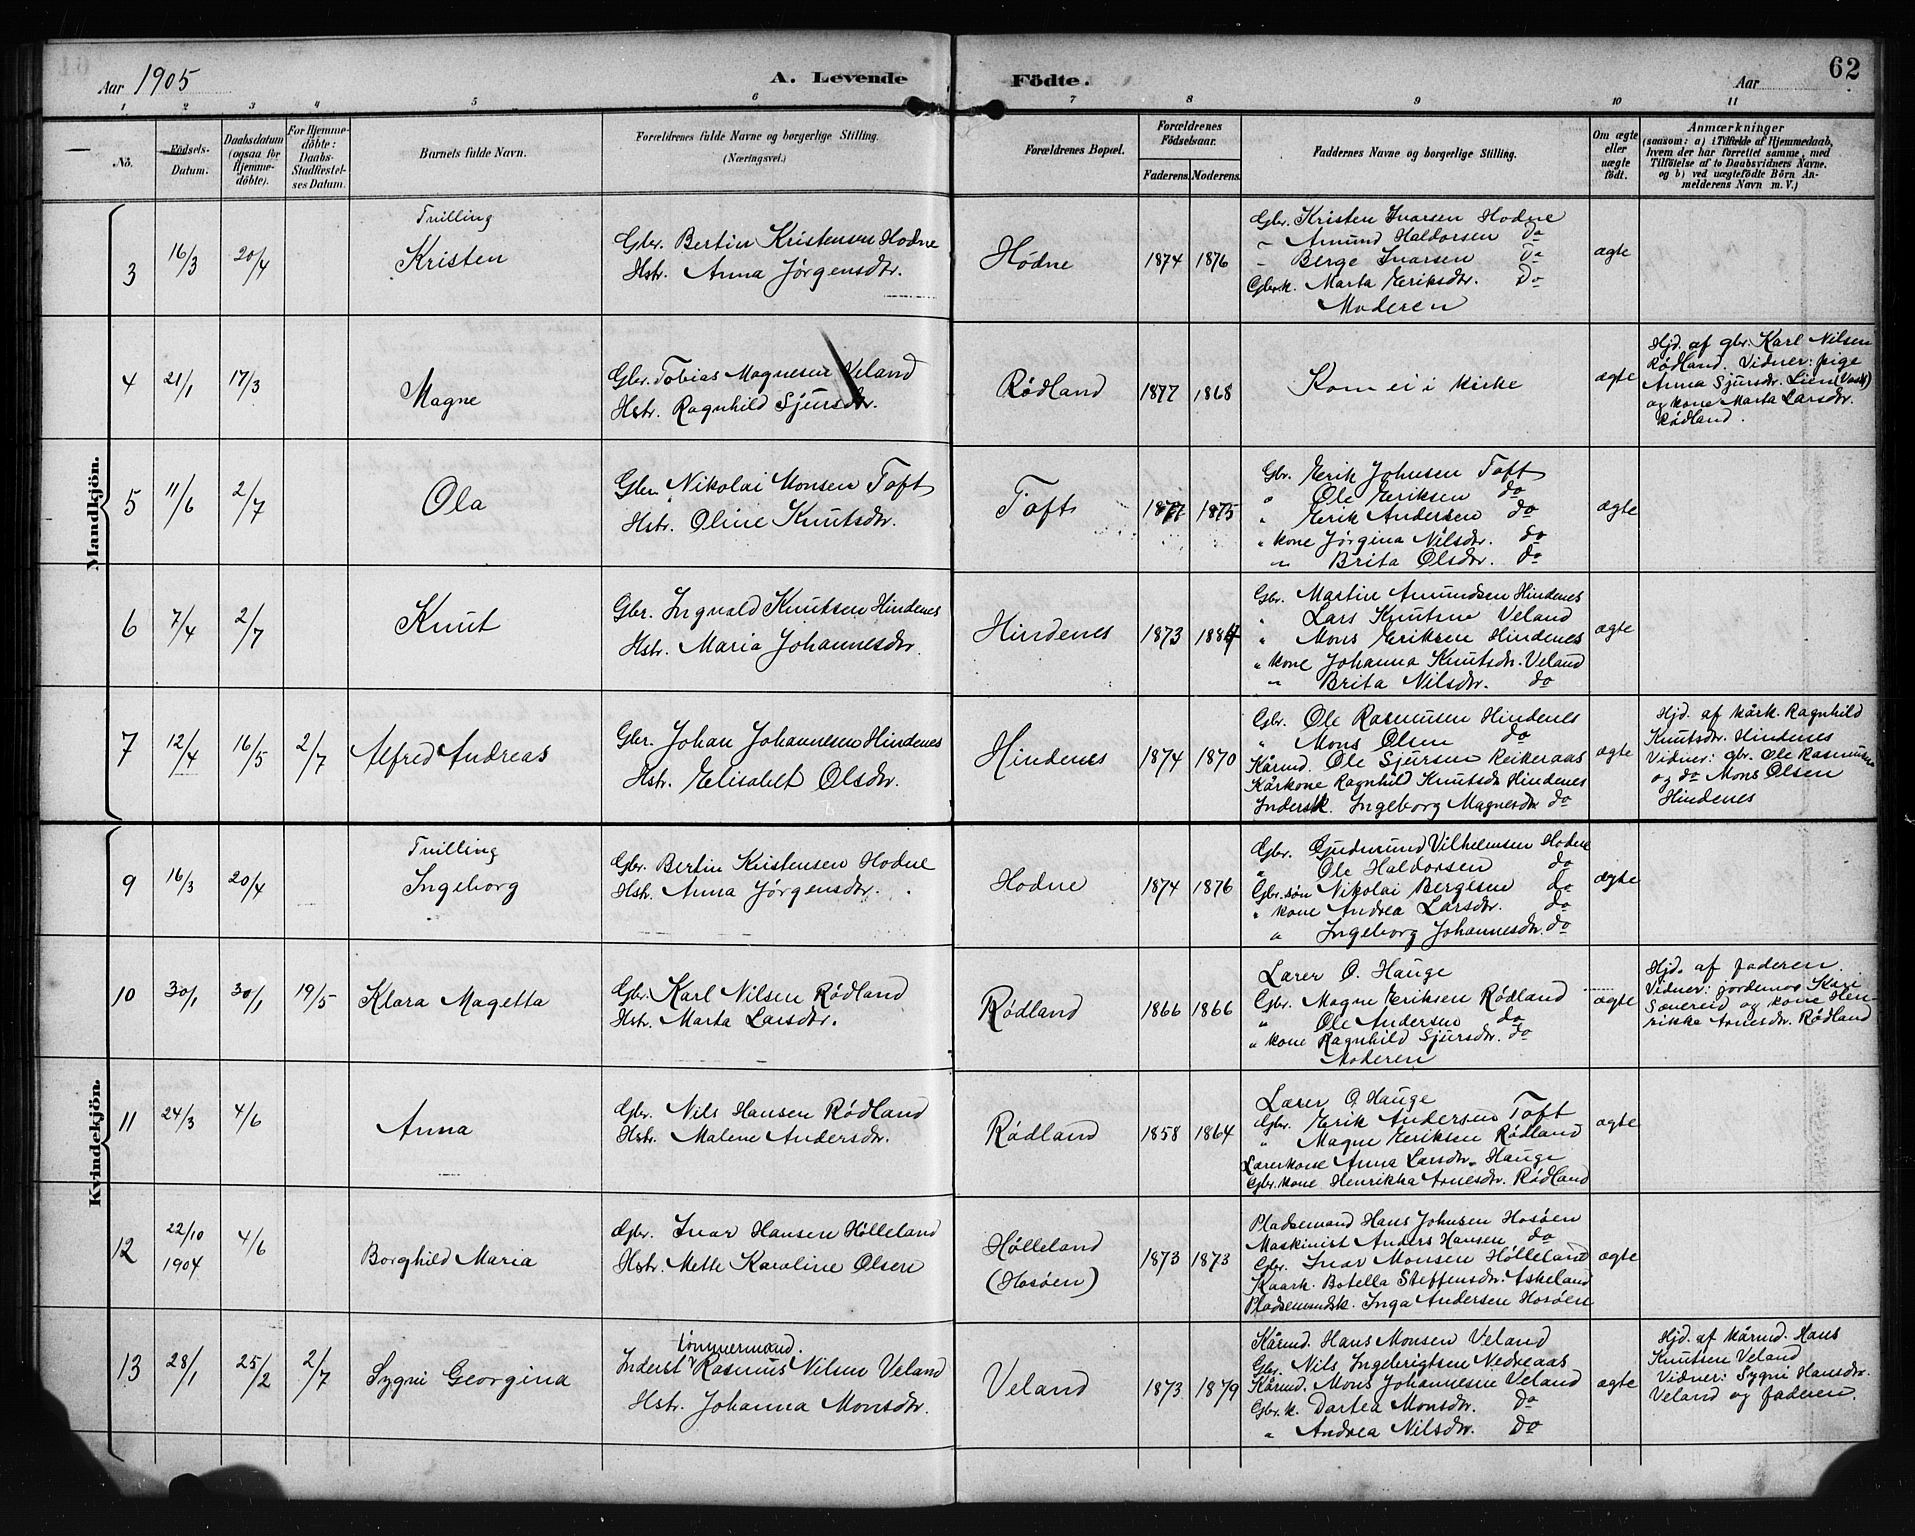 62
Aar 1905
A. Levende
Födte.
Aar
1 2 3 4 5 6 7 8 9 10 11
Nö.
Födsels-
Datum.
Daabsdatum
(ogsaa for
Hjemme-
döbte).
For Hjemme-
döbte:
Daabs-
Stadfæstel-
ses Datum.
Barnets fulde Navn.
Forældrenes fulde Navne og borgerlige Stilling.
(Næringsvei.)
Forældrenes Bopæl.
Forældrenes
Födselsaar.
Faderens. Moderens.
Faddernes Navne og borgerlige Stilling.
Om ægte
eller
uægte
födt.
Anmærkninger
(saasom: a) i Tilfælde af Hjemmedaab,
hvem der har forrettet samme, med
Tilföielse af to Daabsvidners Navne.
og b) ved uægtefödte Börn An-
melderens Navn m. V.)
Mandkjön.
3 16/3 20/4
Tvilling
Kristen
Gbr. Bertin Kristensen Hodne
Hstr. Anna Jørgensdtr.
Hodne 1874 1876
Gbr. Kristen Ivarsen Hodne
" Amund Haldorsen do
" Berge Ivarsen do
Gbrk. Marta Eriksdtr. do
Moderen
ægte
4 21/1 17/3
Magne
Gbr. Tobias Magnesen Veland
Hstr. Ragnhild Sjursdtr.
Rødland 1877 1868
Kom ei i kirke
ægte
Hjd. af gbr. Karl Nilsen
Rødland. Vidner: pige
Anna Sjursdtr. Lien
og kone Marta Larsdtr.
Rødland.
5 11/6 2/7
Ola
Gbr. Nikolai Monsen Toft
Hstr. Oline Knutsdtr.
Toft 1877 1875
Gbr. Erik Johnsen Toft
" Ole Eriksen do
" Erik Andersen do
" kone Jørgina Nilsdtr. do
" Brita Olsdtr. do
ægte
6 7/4 2/7
Knut
Gbr. Ingvald Knutsen Hindenes
Hstr. Maria Johannesdtr.
Hindenes 1873 1884
Gbr. Martin Amundsen Hindenes
" Lars Knutsen Veland
" Mons Eriksen Hindenes
" kone Johanna Knutsdtr. Veland
" Brita Nilsdtr. do
ægte
7 12/4 16/5 2/7
Alfred Andreas
Gbr. Johan Johannesen Hindenes
Hstr. Elisabet Olsdtr.
Hindenes 1874 1870
Gbr. Ole Rasmussen Hindenes
" Mons Olsen do
Kårmd. Ole Sjursen Reikeraas
Kårkone Ragnhild Knutsdtr Hindenes
Inderstk. Ingeborg Magnesdtr do
ægte
Hjd. af kårk. Ragnhild
Knutsdtr. Hindenes
Vidner: gbr. Ole Rasmussen
og do Mons Olsen
Hindenes
Kvindekjön.
9 16/3 20/4
Tvilling
Ingeborg
Gbr. Bertin Kristensen Hodne
Hstr. Anna Jørgensdtr.
Hodne 1874 1876
Gbr. Gudmund Vilhelmsen Hodne
" Ole Haldorsen do
Gbr. søn Nikolai Bergesen do
" kone Andrea Larsdtr. do
" Ingeborg Johannesdtr. do
ægte
10 30/1 30/1 19/5
Klara Magetta
Gbr. Karl Nilsen Rødland
Hstr. Marta Larsdtr.
Rødland 1866 1866
Lærer O. Hauge
Gbr. Magne Eriksen Rødland
" Ole Andersen do
" kone Ragnhild Sjursdtr. do
Moderen
ægte
Hjd. af faderen.
Vidner: jordemor Kari
Sævereid og kone Hen-
rikke Arnesdtr. Rødland
11 24/3 4/6
Anna
Gbr. Nils Hansen Rødland
Hstr. Malene Andersdtr.
Rødland 1858 1864
Lærer O. Hauge
Gbr. Erik Andersen Toft
" Magne Eriksen Rødland
Lærerkone Anna Larsdtr. Hauge
Gbr. kone Henrikka Arnesdtr. Rødland
ægte
12 22/10 1904 4/6
Borghild Maria
Gbr. Ivar Hansen Hølleland
Hstr. Mette Karoline Olsen
Hølleland
(Hosøen)
1873 1873
Pladsemand Hans Johnsen Hosøen
Maskinist Anders Hansen do
Gbr. Ivar Monsen Hølleland
Kaark. Botella Steffensdtr. Askeland
Pladsemandsk. Inga Andersen Hosøen
ægte
13 28/1 25/2 2/7
Sygni Georgina
Tømmermand.
Inderst Rasmus Nilsen Veland
Hstr. Johanna Monsdtr.
Veland 1873 1879
Kårmd. Hans Monsen Veland
Gbr. Nils Ingebrigtsen Nedreaas
Kårmd. Mons Johannesen Veland
Gbr. k. Dortea Monsdtr. do
" Andrea Nilsdtr. do
ægte
Hjd. af kårmd. Hans
Knutsen Veland
Vidner: Sygni Hansdtr.
Veland og faderen.